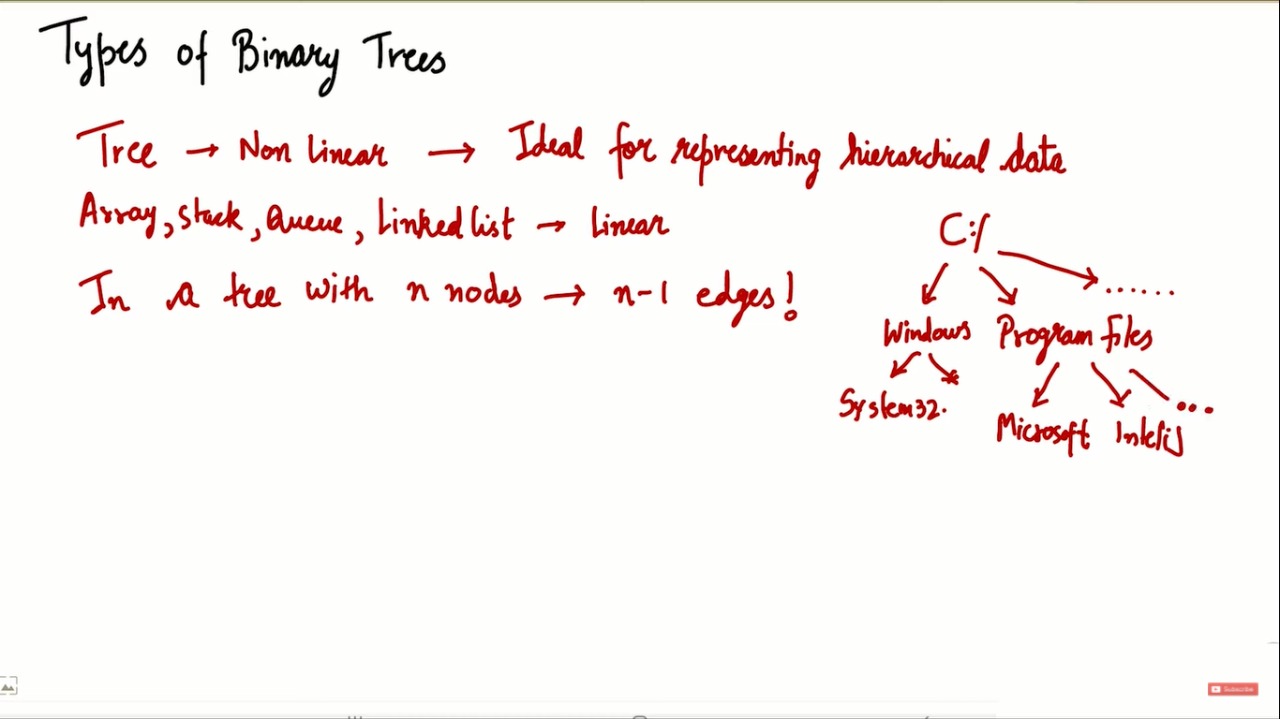 Types of Binary Trees
Tree → Non Linear → Ideal for representing hierarchical data
Array, Stack, Queue, Linked list → Linear
In a tree with n nodes → n-1 edges!
C:/
......
Windows Program files
System32.
...
Microsoft IntelliJ
Subscribe